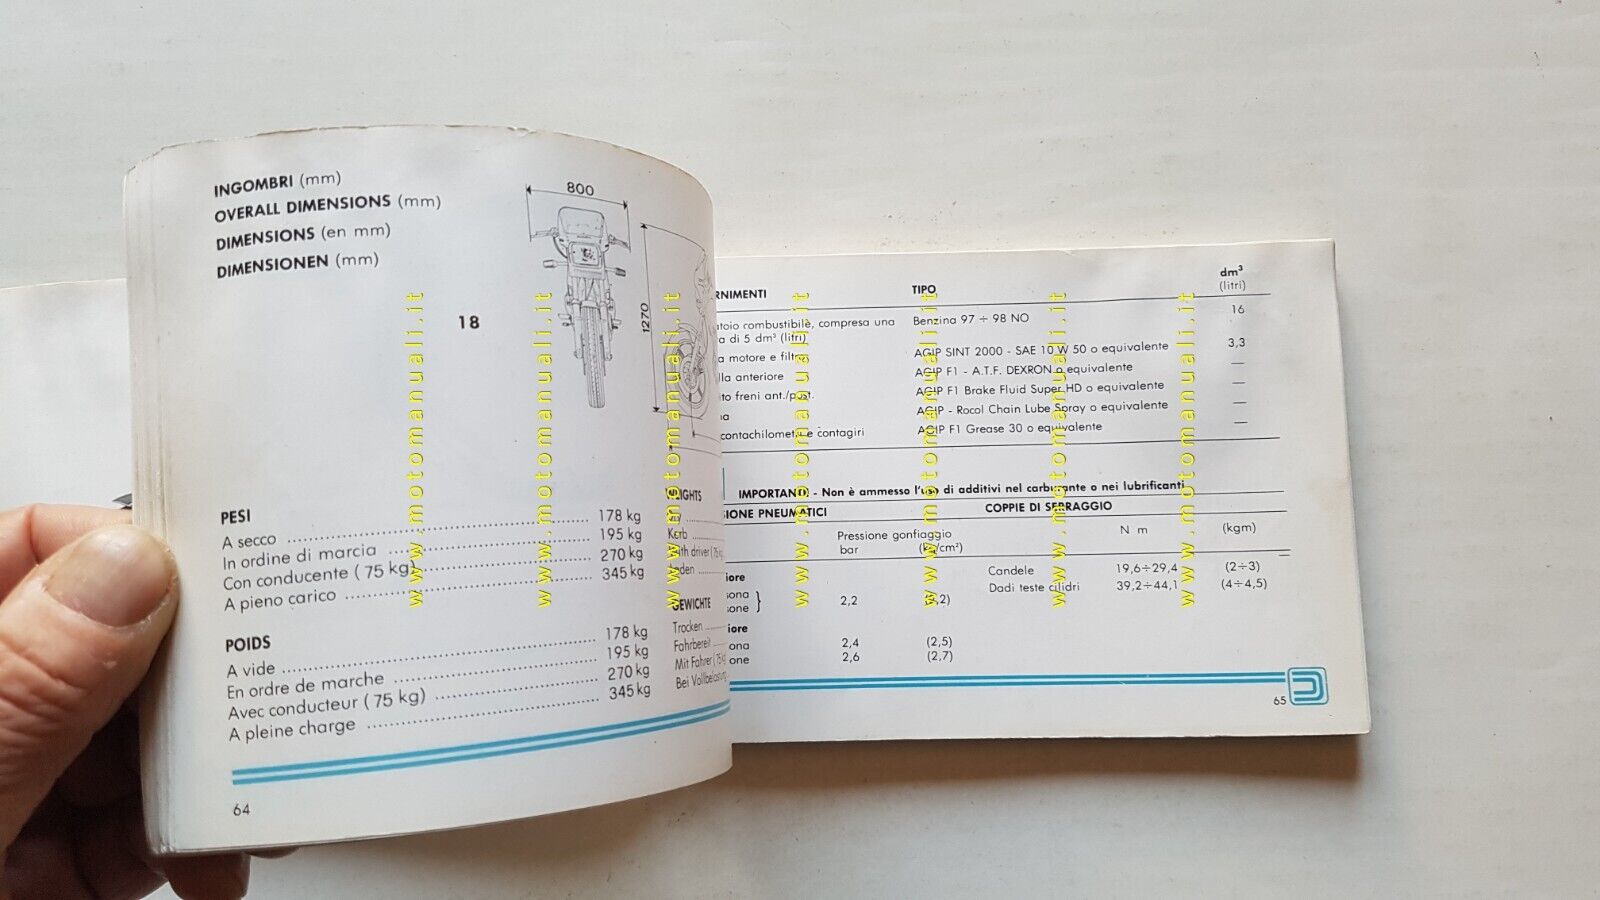 INGOMBRI (mm)
OVERALL DIMENSIONS (mm)
DIMENSIONS (en mm)
DIMENSIONEN (mm)
800
1270
18
PESI
A secco 178 kg
In ordine di marcia 195 kg
Con conducente (75 kg) 270 kg
A pieno carico 345 kg
POIDS
A vide 178 kg
En ordre de marche 195 kg
Avec conducteur (75 kg) 270 kg
A pleine charge 345 kg
GEWICHTE
Trocken
Fahrbereit
Mit Fahrer (75 k
Bei Vollbelastung
64
RNIMENTI TIPO dm³
(litri)
atoio combustibilè, compresa una Benzina 97 ÷ 98 NO 16
a di 5 dm³ (litri)
a motore e filtro AGIP SINT 2000 - SAE 10 W 50 o equivalente 3,3
lla anteriore AGIP F1 - A.T.F. DEXRON o equivalente —
ito freni ant./post. AGIP F1 Brake Fluid Super HD o equivalente —
na AGIP - Rocol Chain Lube Spray o equivalente —
contachilometri e contagiri AGIP F1 Grease 30 o equivalente —
IMPORTANTE - Non è ammesso l'uso di additivi nel carburante o nei lubrificanti
SIONE PNEUMATICI COPPIE DI SERRAGGIO
Pressione gonfiaggio N m (kgm)
bar (kg/cm²)
Candele 19,6÷29,4 (2÷3)
Dadi teste cilidri 39,2÷44,1 (4÷4,5)
iore
sona
sone } 2,2 (2,2)
iore
ona 2,4 (2,5)
one 2,6 (2,7)
65
www.motomanuali.it
www.motomanuali.it
www.motomanuali.it
www.motomanuali.it
www.motomanuali.it
www.motomanuali.it
www.motomanuali.it